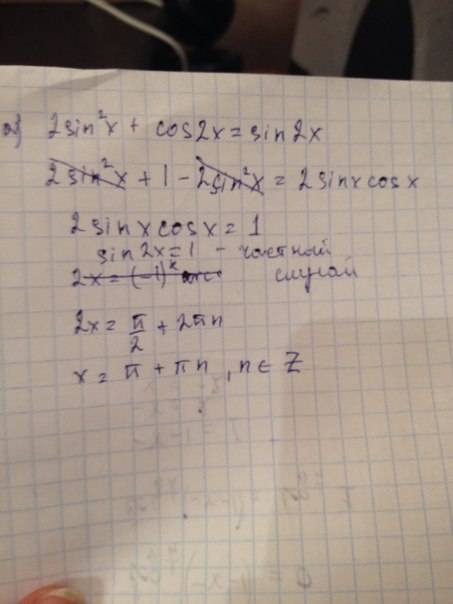 а) 2sin²x + cos2x = sin2x
2sin²x + 1 - 2sin²x = 2sinxcosx
2sinxcosx = 1
sin2x = 1 - частный
случай
2x = (-1)ᵏ arc
2x = π/2 + 2πn
x = π + πn, n ∈ Z